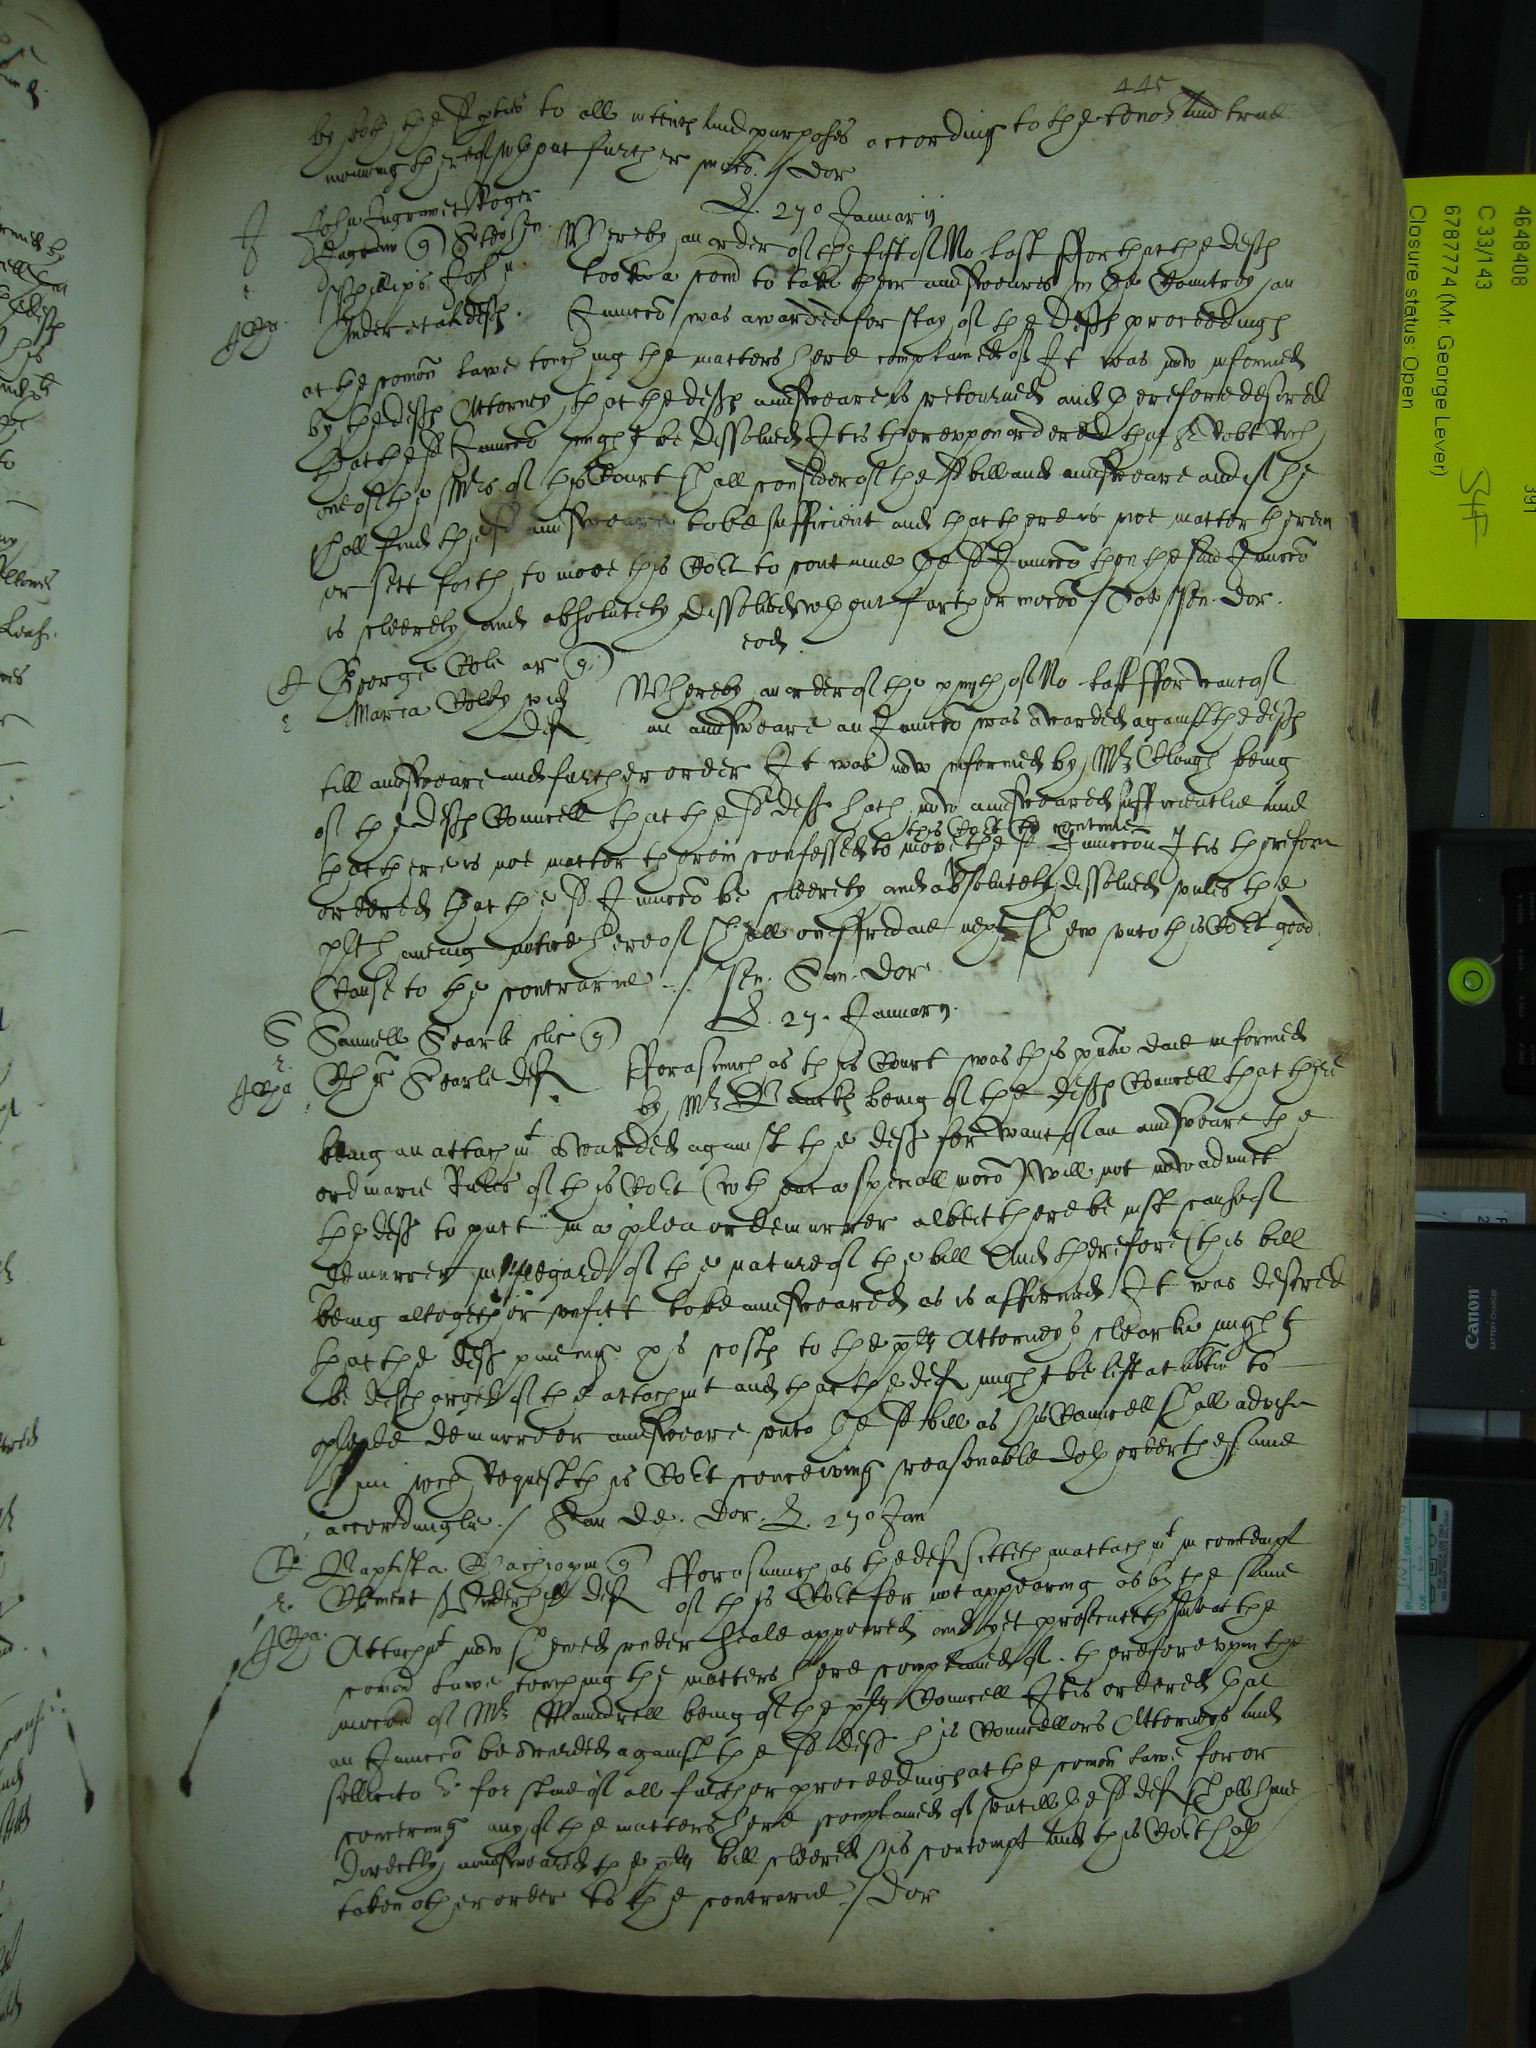 445
by both the sd pties to all intents and purposes according to the tenor and true
meaning thereof wthout further mocō / Dor
D. 27º Januarij
John Ingram et Roger
Ingram q
Phelips John
Whereby an order of the first of No: last ffor that the defts
tooke a comō to take their answeare in the Countrey an
Iniuncō was awarded for stay of the defts proceedings
at the comōn lawe touching the matters here complained of It was now informed
by the defts Attorney that the defts answeare is retourned and therefore desired
that the sd Iniuncō might be dissolued It is therevpon ordered that
one of the Mrs of this Court shall consider of the sd bill and answeare and if he
shall finde the sd answeare to be sufficient and that there is not matter therein
or sett forth to move this Cort to continue the sd Iniuncō then the said Iniuncō
is cleerely and absolutely dissolued wthout further mocō / Dor.
eod.
George Cole ar q
Maria wid
Def
Whereby an order of the of No: last ffor want of
an answeare an Iniuncō was awarded against the defts
till answeare and further order It was now informed by Mr Clough being
of the defts Councell that the sd deft hath now answeared sufficientlie and
this Cort to continue
that there is not matter therein confessed to move the sd Iniuncōn It is therefore
ordered that the sd Iniuncō be cleerely and absolutely dissolued vnles the
plts hauing notice hereof shall on ffridaie next shew vnto this Cort good
Cause to the contrarie ./ Dor
D. 27. Januarij.
Samuell Searle q
Searle Def
fforasmuch as this Court was this pnte daie informed
by Mr being of the defts Councell that there
being an attachmt awarded against the deft for want of an answeare the
ordinarie Rules of this Cort (wthout a speciall mocō) will not now admitt
the deft to putt in a plea or demurrer albeit there be iust cause of
demurrer in regard of the nature of the bill And therefore (this bill
being altogether vnfitt to be answeared as is affirmed) It was desired
that the deft paieing xs costs to the plts Attorneys clearke might
be discharged of the attachmt and that the deft might be left at libtie to
pleade demurre or answeare vnto the sd bill as his Councell shall advise
him wch Request this Cort conceiving reasonable doth order the same
accordinglie ./ Dor. D. 27º Jan
Baptista q
Clement Def
fforasmuch as the deft sitteth attachmt in contempt
of this Cort for not appearing as by the same
Attachmt now shewed vnder seale appeareth and yet prosecuteth suite at the
comōn lawe touching the matters here complained of. therefore vpon the
mocōn of Mr Maundrell being of the plts Councell It is ordered that
an Iniuncō be awarded against the sd deft his Councellors Attorneys and
sollicitors for staie of all further proceedings at the comōn lawe for or
concerning any of the matters here complained of vntill the sd deft shall haue
directly answeared the plts bill cleered his contempt and this Cort hath
taken other order to the contrarie / Dor
4648408
C 33/143
6787774 (Mr. George Lever)
Closure status: Open
391
Canon
BATTERY CHARGER